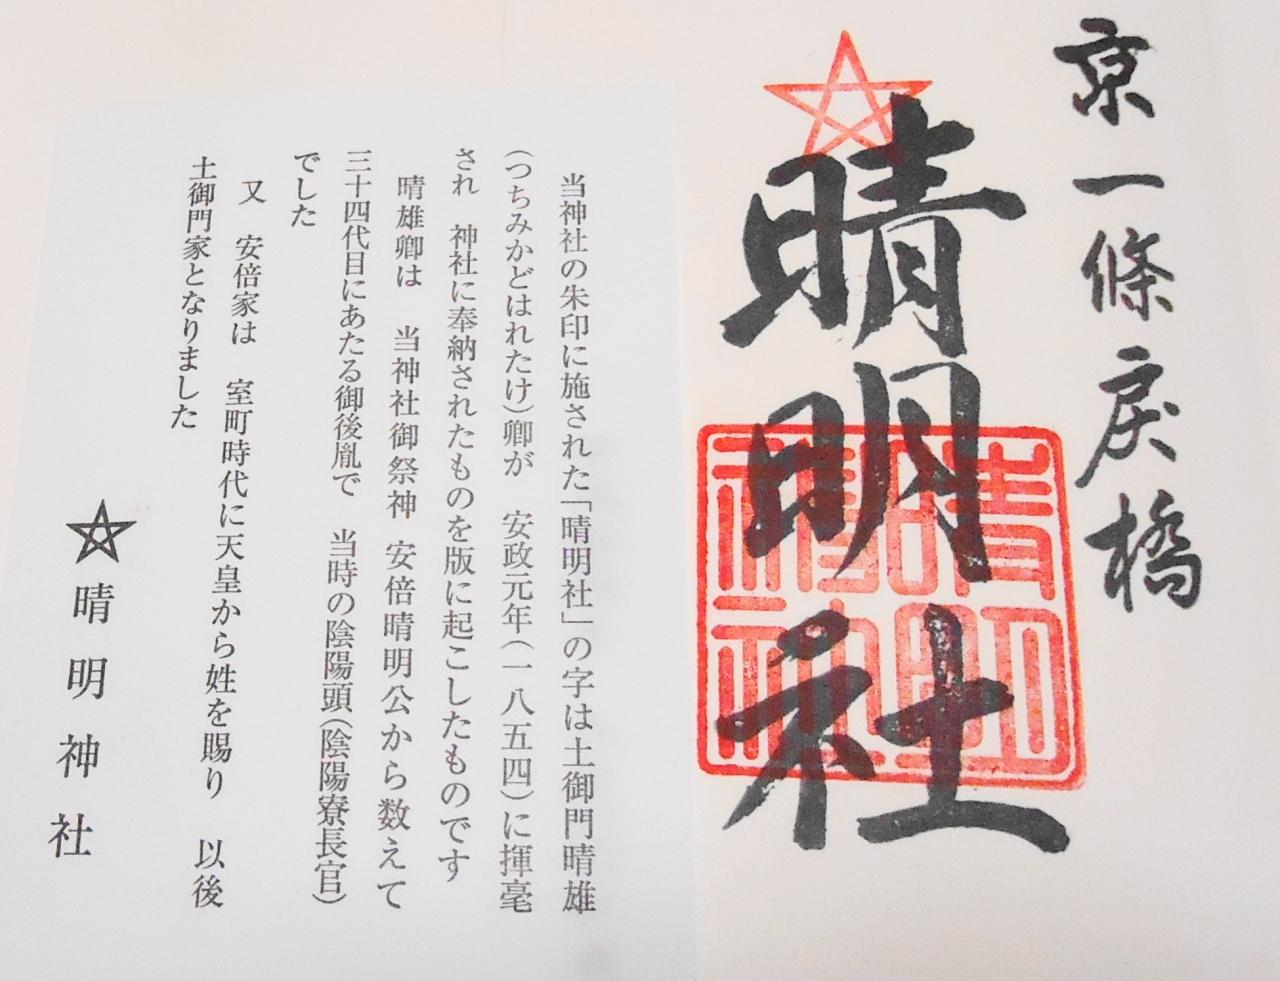 京一條戻橋
晴明社
晴明神社
当神社の朱印に施された「晴明社」の字は土御門晴雄
(つちみかどはれたけ)卿が　安政元年(一八五四)に揮毫
され　神社に奉納されたものを版に起こしたものです
晴雄卿は　当神社御祭神　安倍晴明公から数えて
三十四代目にあたる御後胤で　当時の陰陽頭(陰陽寮長官)
でした
又　安倍家は　室町時代に天皇から姓を賜り　以後
土御門家となりました
晴明神社